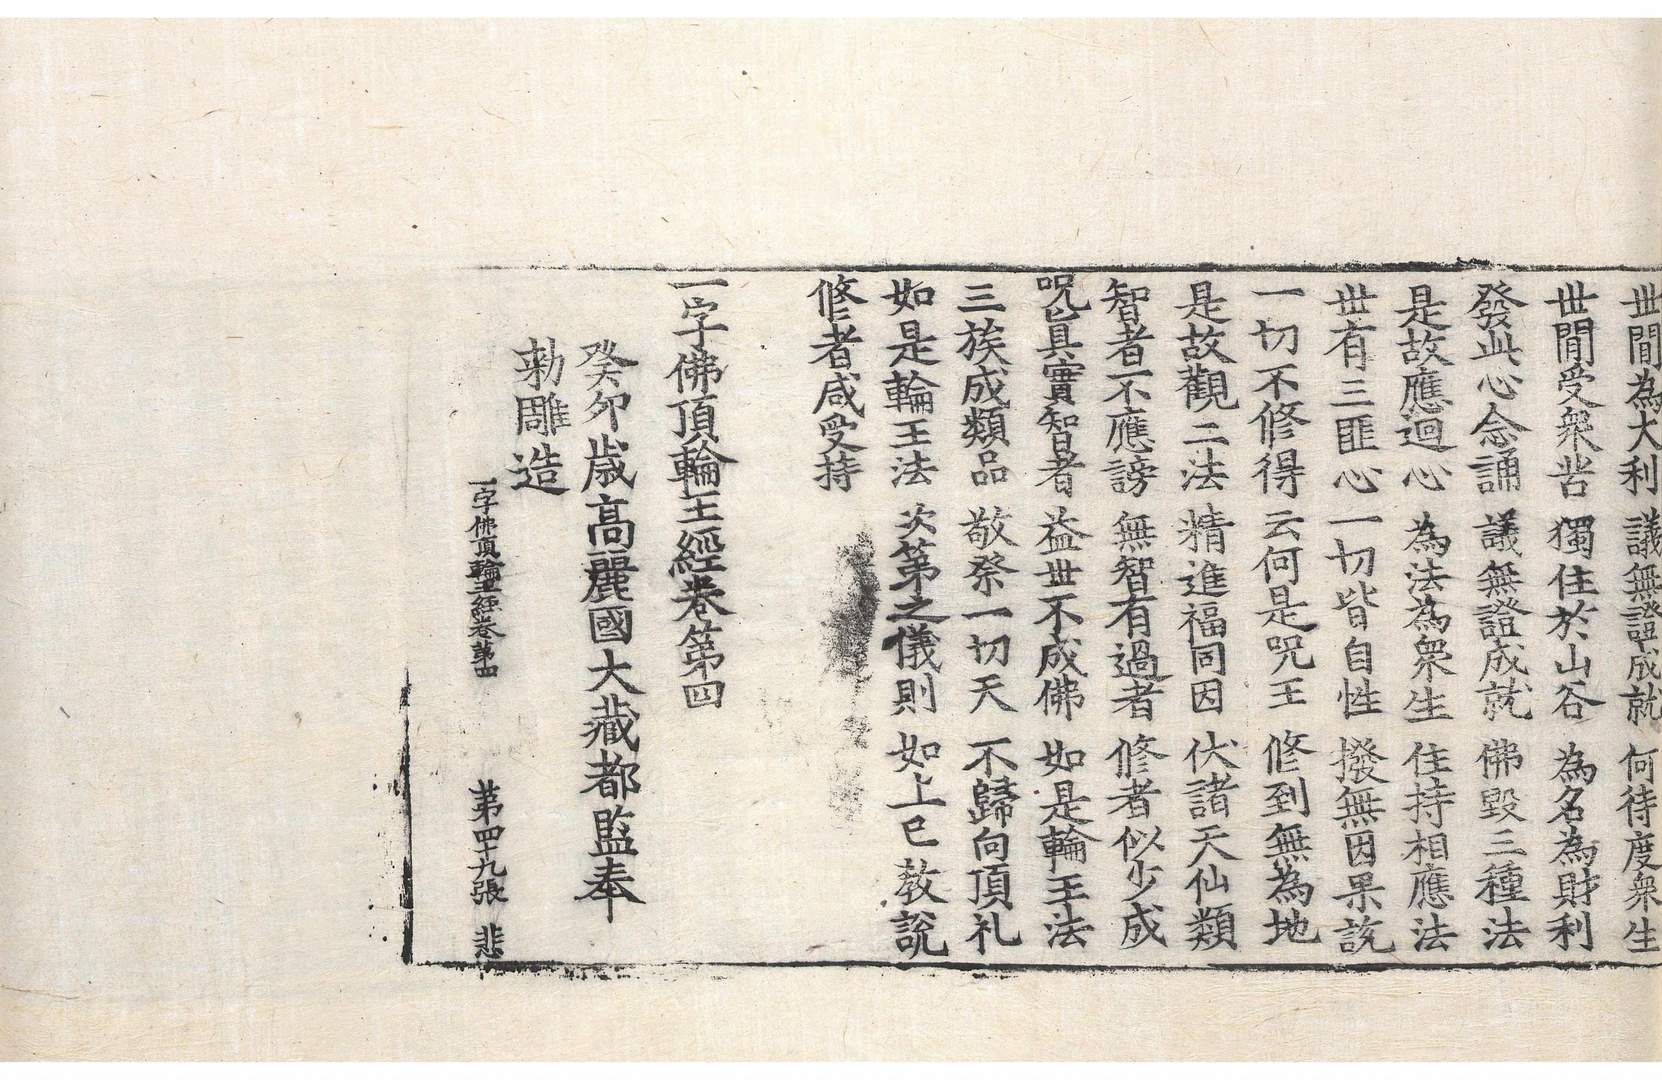 世間為大利 議無證成就 何待度衆生
世間受衆苦 獨住於山谷 為名為財利
發此心念誦 議無證成就 佛毀三種法
是故應迴心 為法為衆生 住持相應法
世有三匪心 一切皆自性 撥無因果說
一切不修得 云何是呪王 修到無為地
是故觀二法 精進福同因 伏諸天仙類
智者不應謗 無智有過者 修者似少成
呪具實智者 益世不成佛 如是輪王法
三族成類品 敬祭一切天 不歸向頂礼
如是輪王法 次第之儀則 如上已教說
修者咸受持
一字佛頂輪王經卷第四
癸卯歲高麗國大藏都監奉
勅雕造
一字佛頂輪王經卷第四 第四十九張 悲